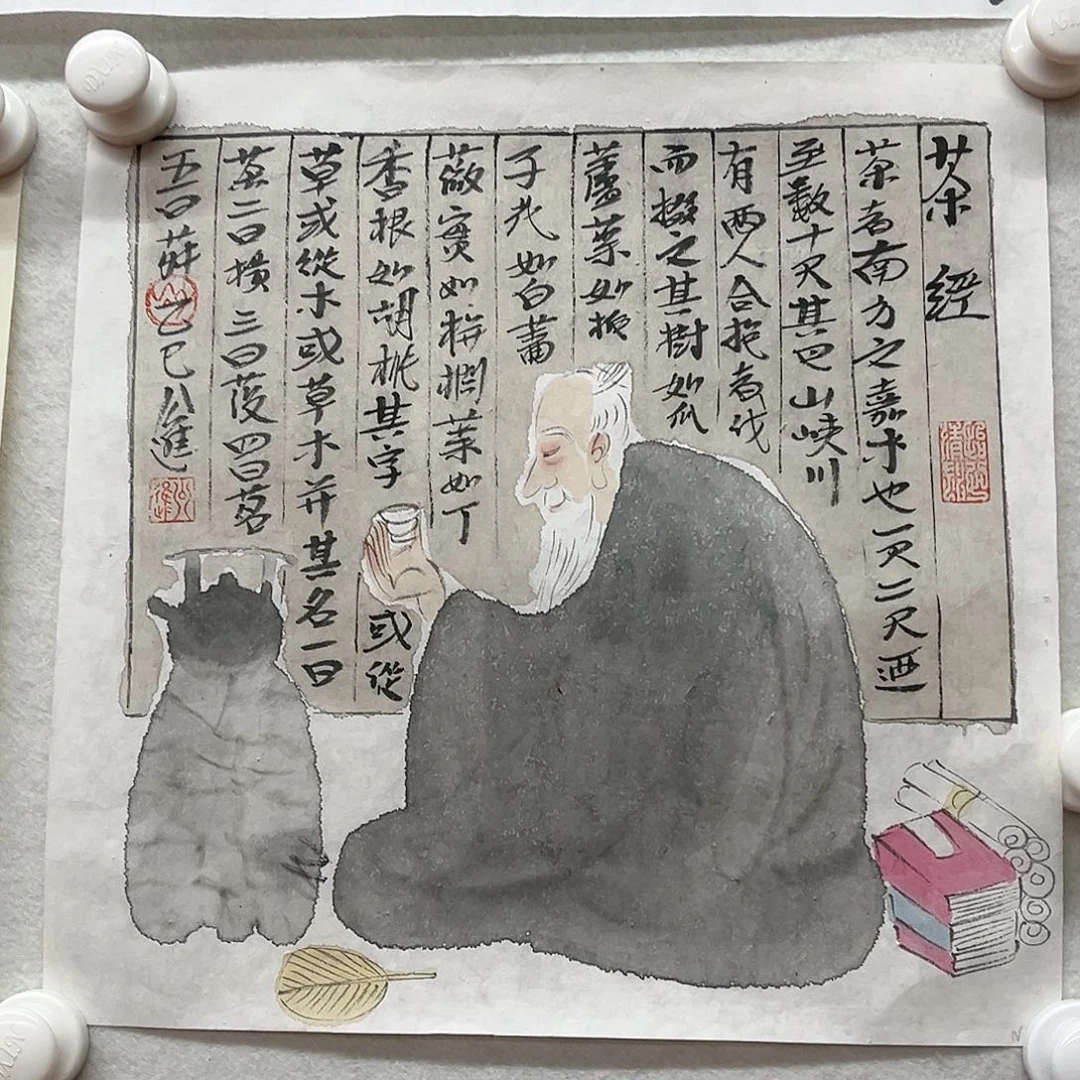 茶經
茶者南方之嘉木也一尺二尺迺
至數十尺其巴山峽川
有兩人合抱者伐
而掇之其樹如瓜
蘆葉如梔
子花如白薔
薇實如栟櫚葉如丁
香根如胡桃其字或從
草或從木或草木并其名一曰
茶二曰檟三曰蔎四曰茗
五曰荈乙巳公進